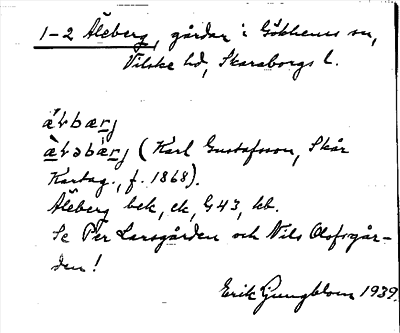 1-2 Åleberg, gårdar i Gökhems sn,
Vilske hd, Skaraborgs l.
Karl Gustafsson, Skår
Kartag., f. 1868).
Åleberg bek, ek, G43, kb.
Se Per Larsgården och Nils Olofsgår-
den!
Erik Ljungblom 1939.